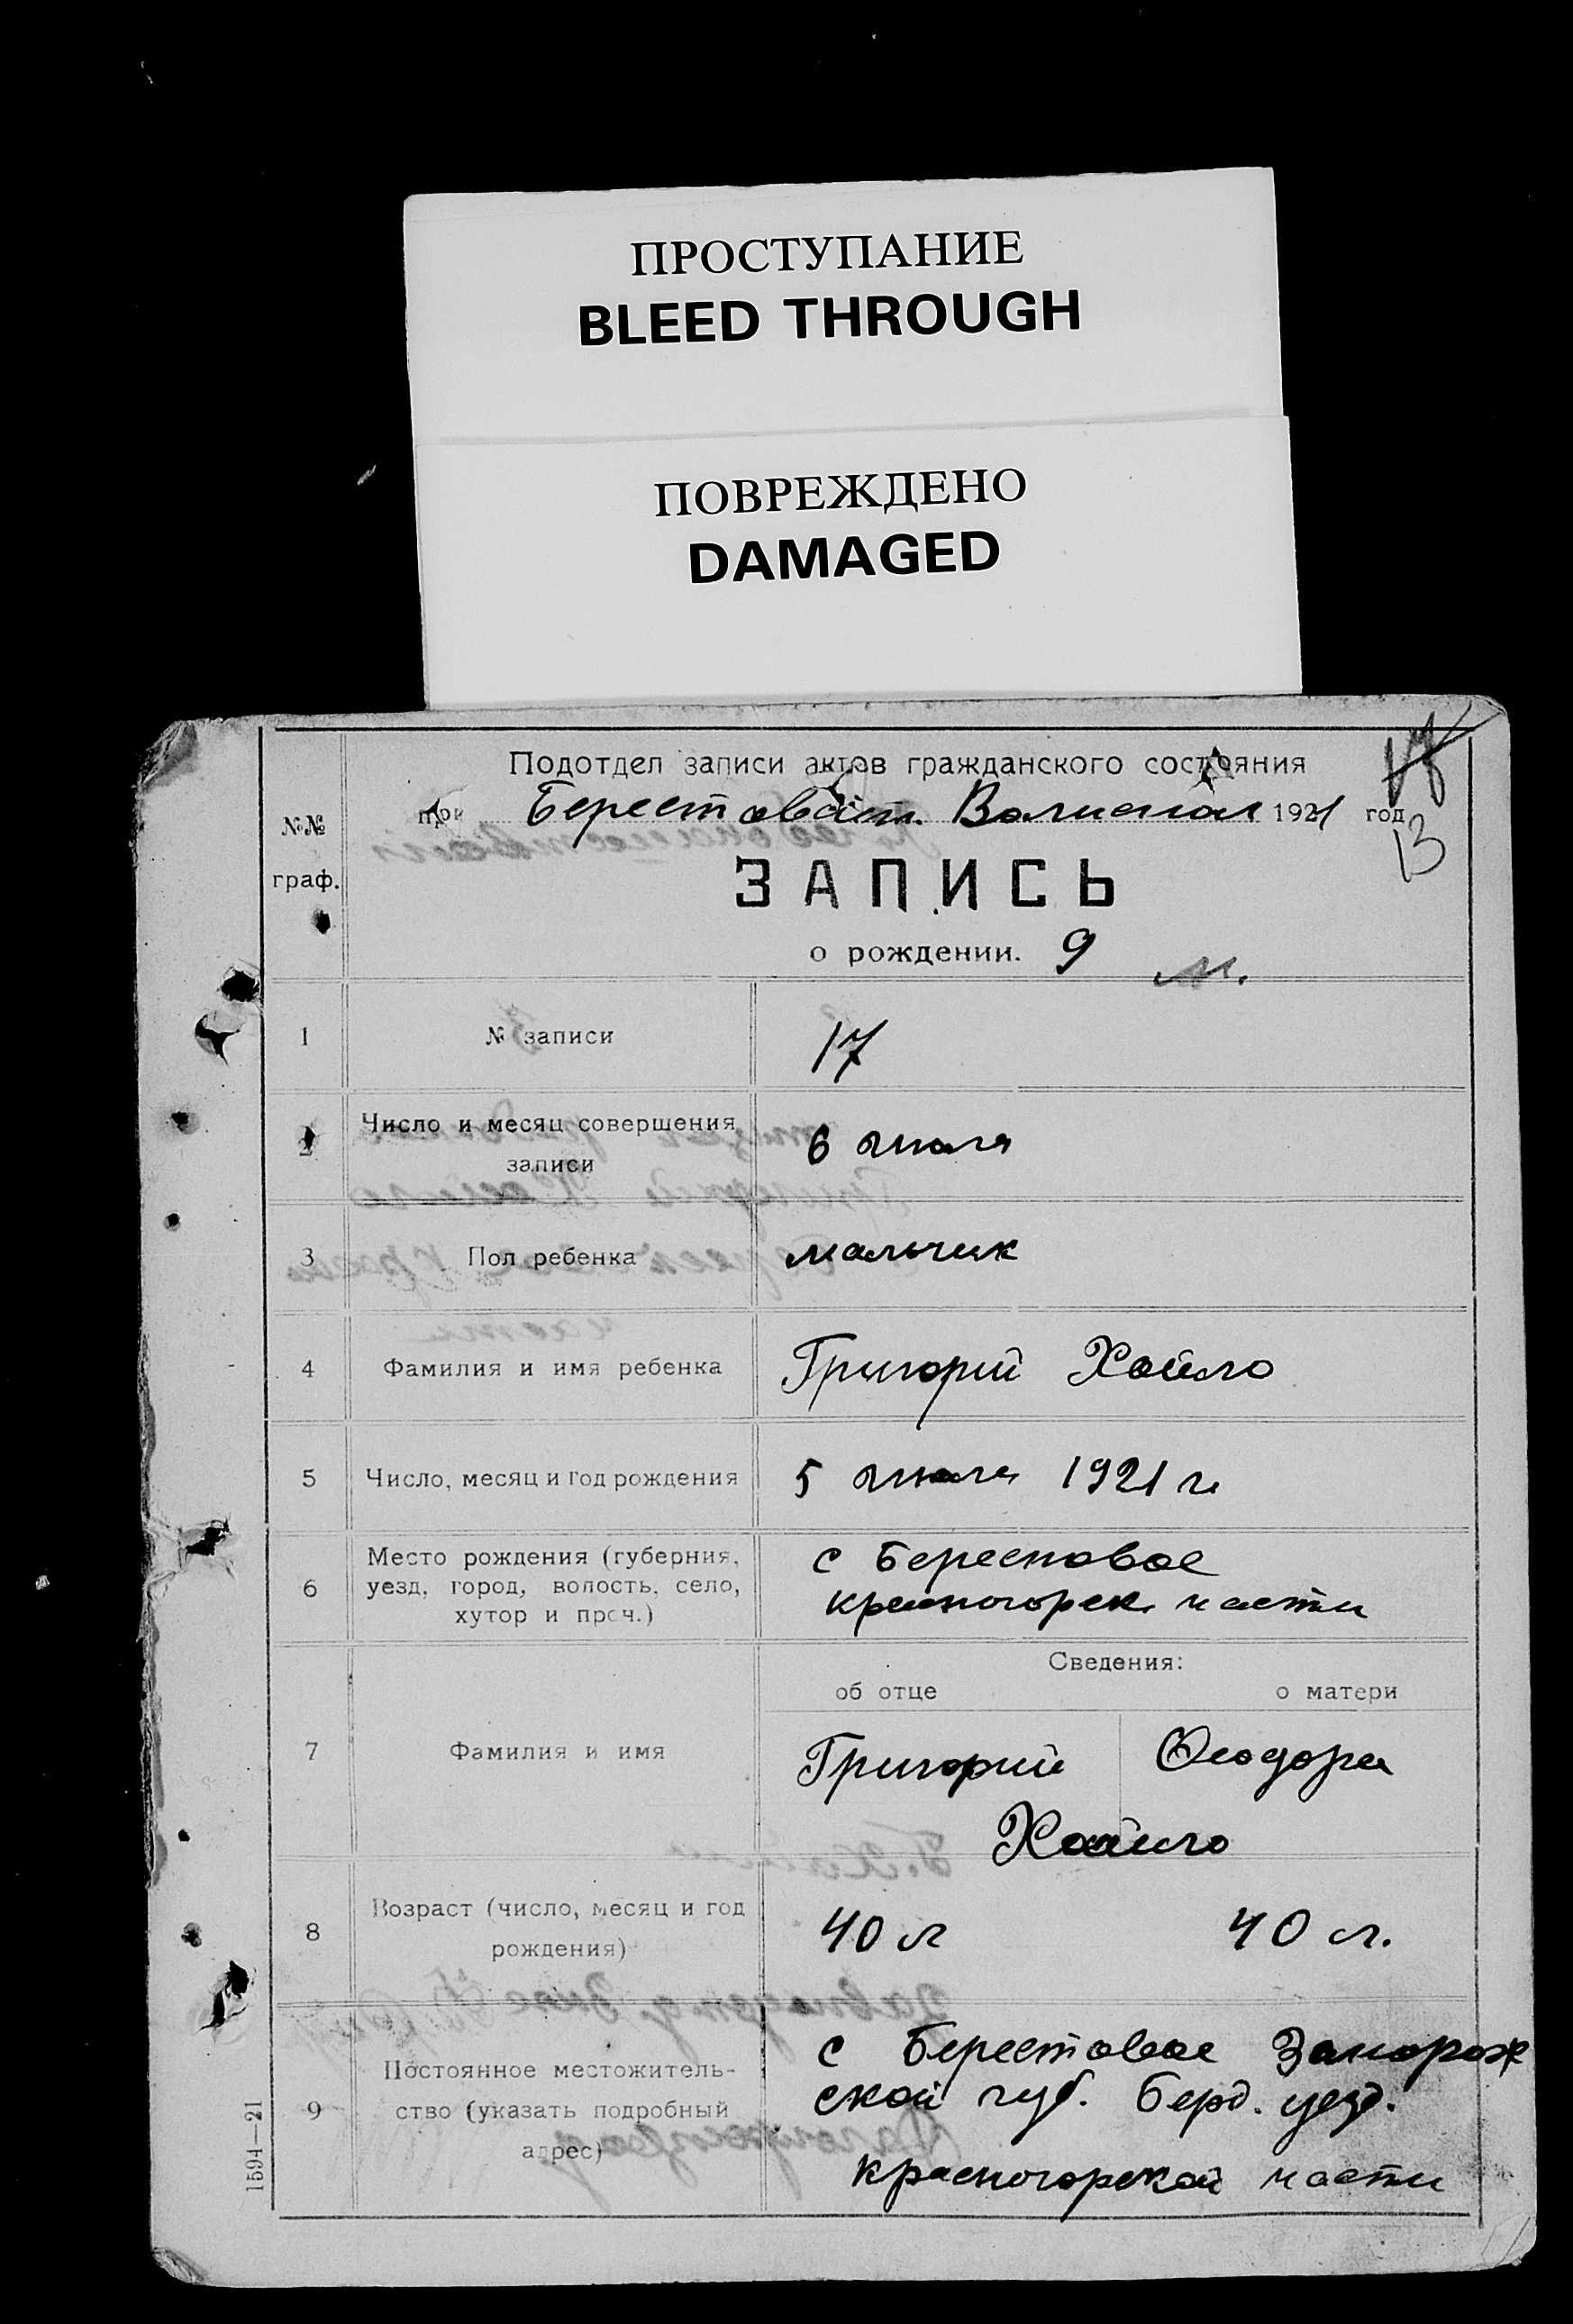 ПРОСТУПАНИЕ
BLEED THROUGH
ПОВРЕЖДЕНО
DAMAGED
Подотдел записи актов гражданского состояния
при Берестоват. 1921 год
13
№№
граф.
ЗАПИСЬ
о рождении. 9 м.
1 № записи 17
2 Число и месяц совершения
записи 6 июля
3 Пол ребенка мальчик
4 Фамилия и имя ребенка Григорий Хайло
5 Число, месяц и год рождения 5 июля 1921 г
6 Место рождения (губерния,
уезд, город, волость, село,
хутор и проч.)
с Берестовое
красногорск. части
Сведения:
об отце о матери
7 Фамилия и имя Григорий Феодора
Хайло
8 Возраст (число, месяц и год
рождения) 40 л 40 л.
9 Постоянное местожитель-
ство (указать подробный
адрес)
с Берестовое Запорож
ской губ. Берд. уезд.
красногорской части
1594—21